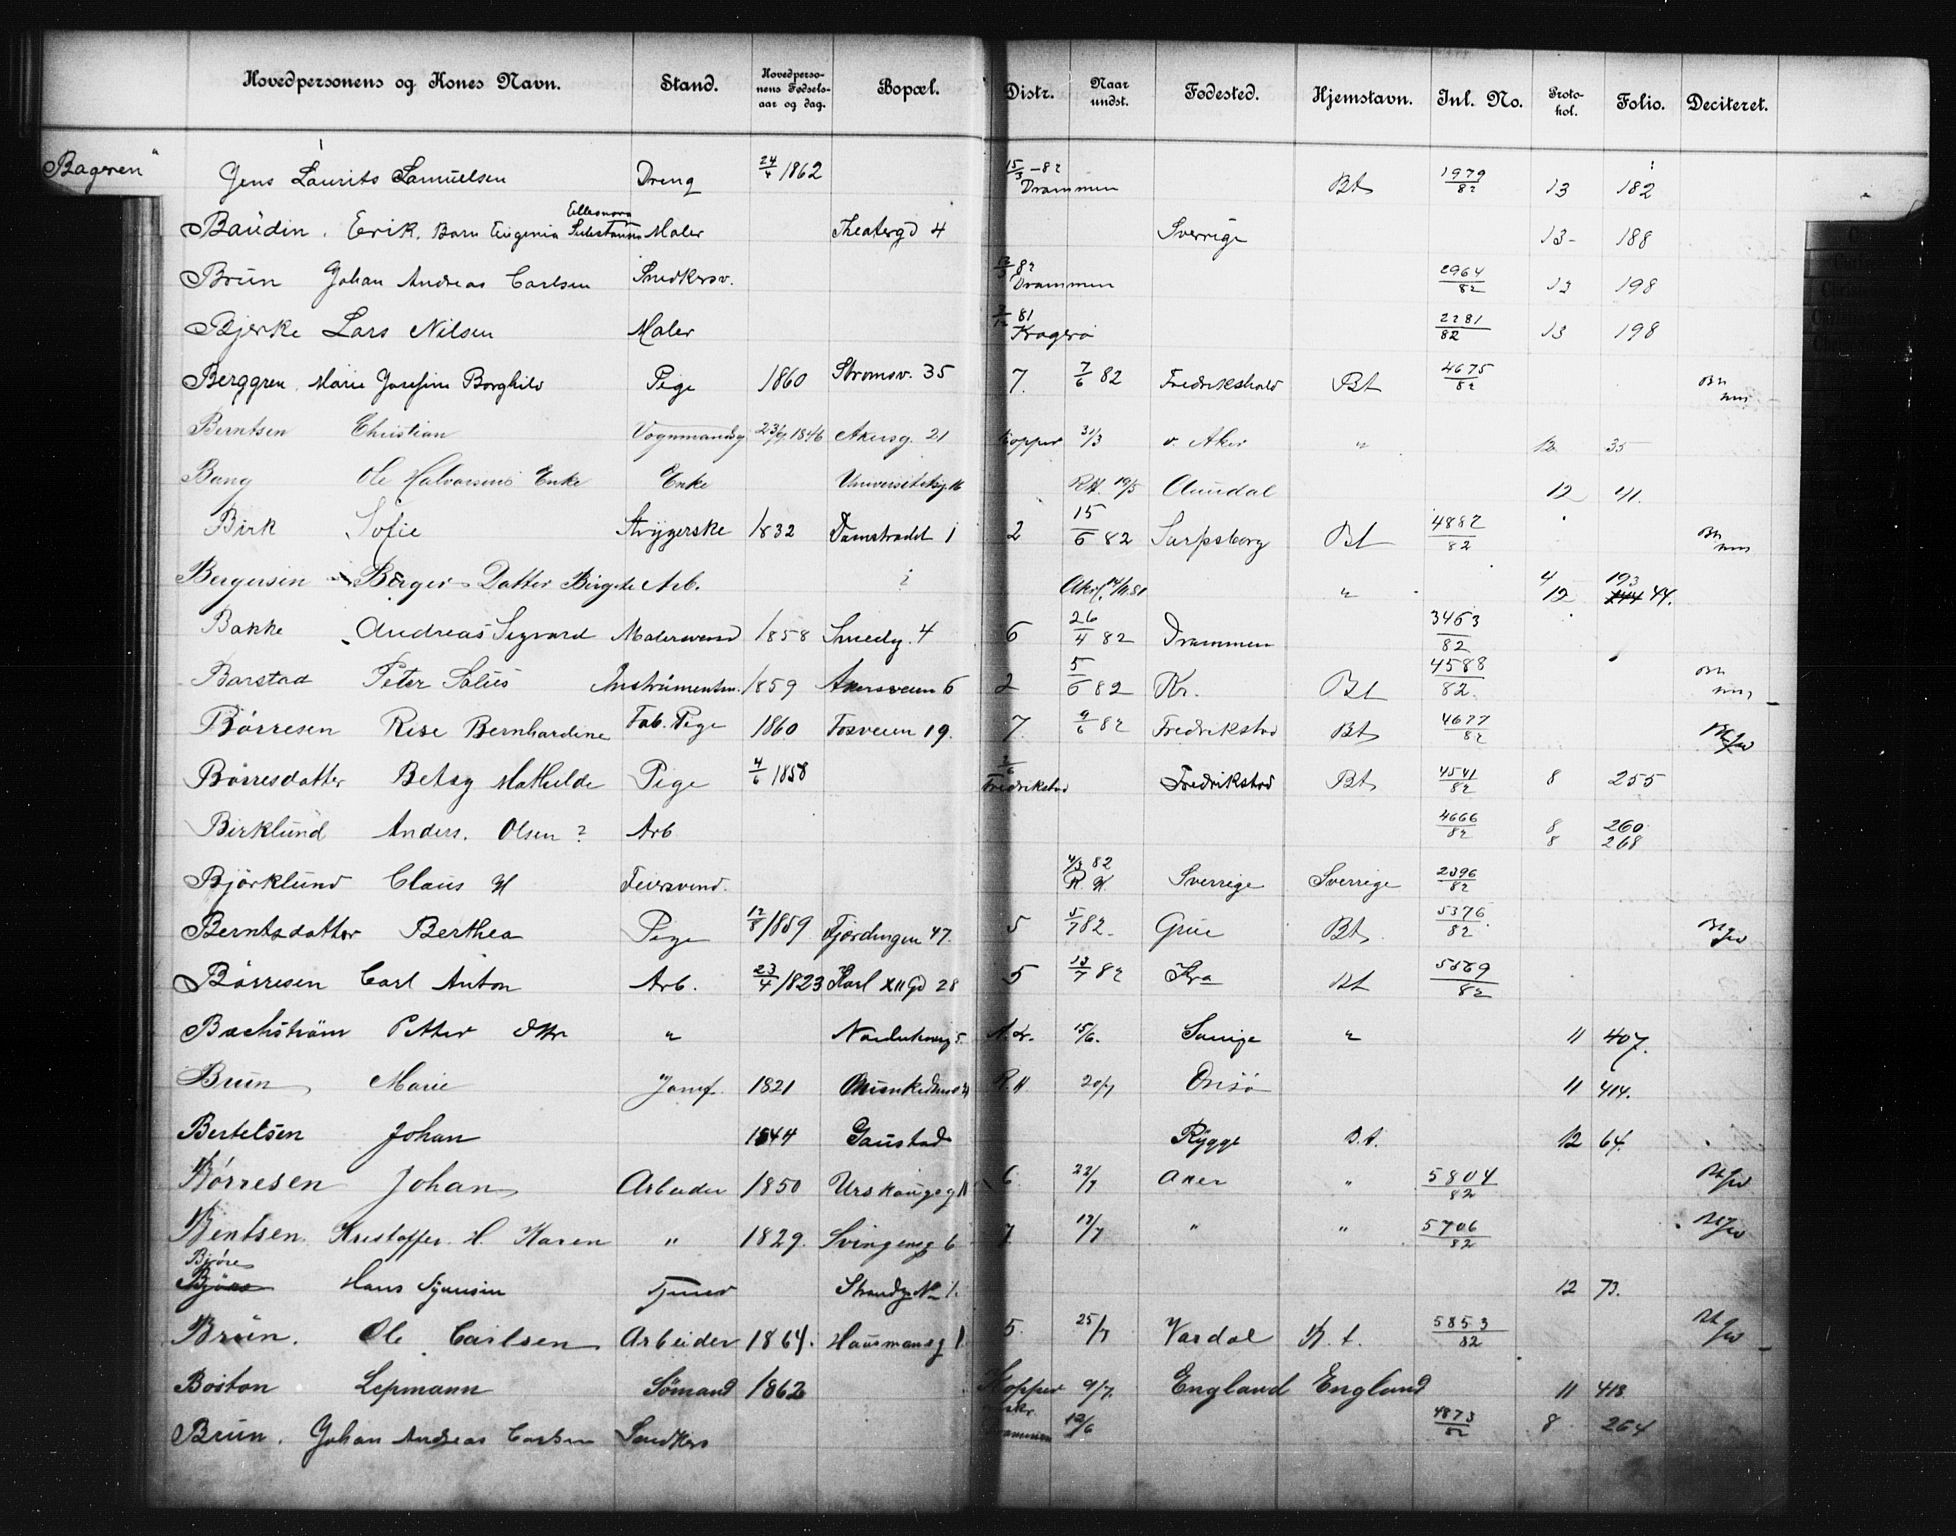 Hovedpersonens og Kones Navn. Stand. Hovedpersonens Fødselsaar og dag. Bopæl. Distr. Naar undst. Fødested. Hjemstavn. Inl. No. Protokol. Folio. Deciteret.
"Bageren" Jens Laurits Samuelsen Dreng 24/4 1862 15/3 -82 Drammen Bt 1979/82 13 182
Baudin. Erik. Barn Eugenia Elleonora Maler Theatergd 4 Sverrige 13- 188
Brun Johan Andreas Carlsen Snedkersv. 82 Drammen 2964/82 13 198
Bjerke Lars Nilsen Maler 81 Kragerø 2281/82 13 198
Berggren. Marie Josefine Borghild Pige 1860 Strømsv. 35 7. 7/6 82 Fredrikshald Bt 4675/82
Berntsen Christian Vognmandsg 23/9 1846 Akersg. 21 Kopper 31/3 v. Aker " 12 35
Bang Ole Halvorsens Enke Enke Universitetsg 16 R.H. 19/5 12 41.
Birk Sofie Strygerske 1832 Damstrædet 1 2 15/6 82 Sarpsborg Bt 4887/82
Bergersen Berger Datter Birgite Arb. ? " 4 193 12 44.
Bakke Andreas Sigvard Malersvend 1858 Smedg. 4 6 26/4 82 Drammen 3463/82
Barstad Peter Julius Instrumentm. 1859 Akersveien 6 2 5/6 82 Kr. Bt 4588/82.
Børresen Rise Bernhardine Fab. Pige 1860 Fosveien 19. 7. 9/6 82 Fredrikstad Bt 4677/82
Børresdatter Betsy Mathilde Pige 4/6 1858 Fredrikstad Fredrikstad Bt 4541/82 8 255
Birklund Anders. Olsen ? Arb 4666/82 8 260 8 268
Björklund Claus H Feiersvend. 4/3 82 R.H. Sverrige Sverrige 2396/82
Berntsdatter Berthea Pige 12/8 1859 Fjerdingen 47. 5 5/7 82. Grue Bt 5376/82
Børresen Carl Anton Arb. 23/4 1823 Karl XII Gd 28 5 13/7 82 Kra Bt 5569/82
Bachström Petter " 15/6. " 11 407.
Brun, Marie Jomf. 1821 R.H 20/7 11 414.
Bertelsen Johan 1844 Gaustad Rygge B.t. 12 64.
Børresen Johan Arbeider 1850 Urskougsg 11 6. 22/7 Aker " 5804/82
Bentsen. Kristoffer H. Karen " 1829. Svingensg 6 7 13/7 " " 5706/82
Bjøre
Hans 12 73.
Brun. Ole Carlsen Arbeider 1864. Hausmansg 1. 5. 25/7 Vardal B.t. 5853/82
Boston Lepmann Sømand 1862 Kopper 9/7. England England 11 418
Brun. Johan Andreas Carlsen Snedkers 12/6 4873/82 8 264